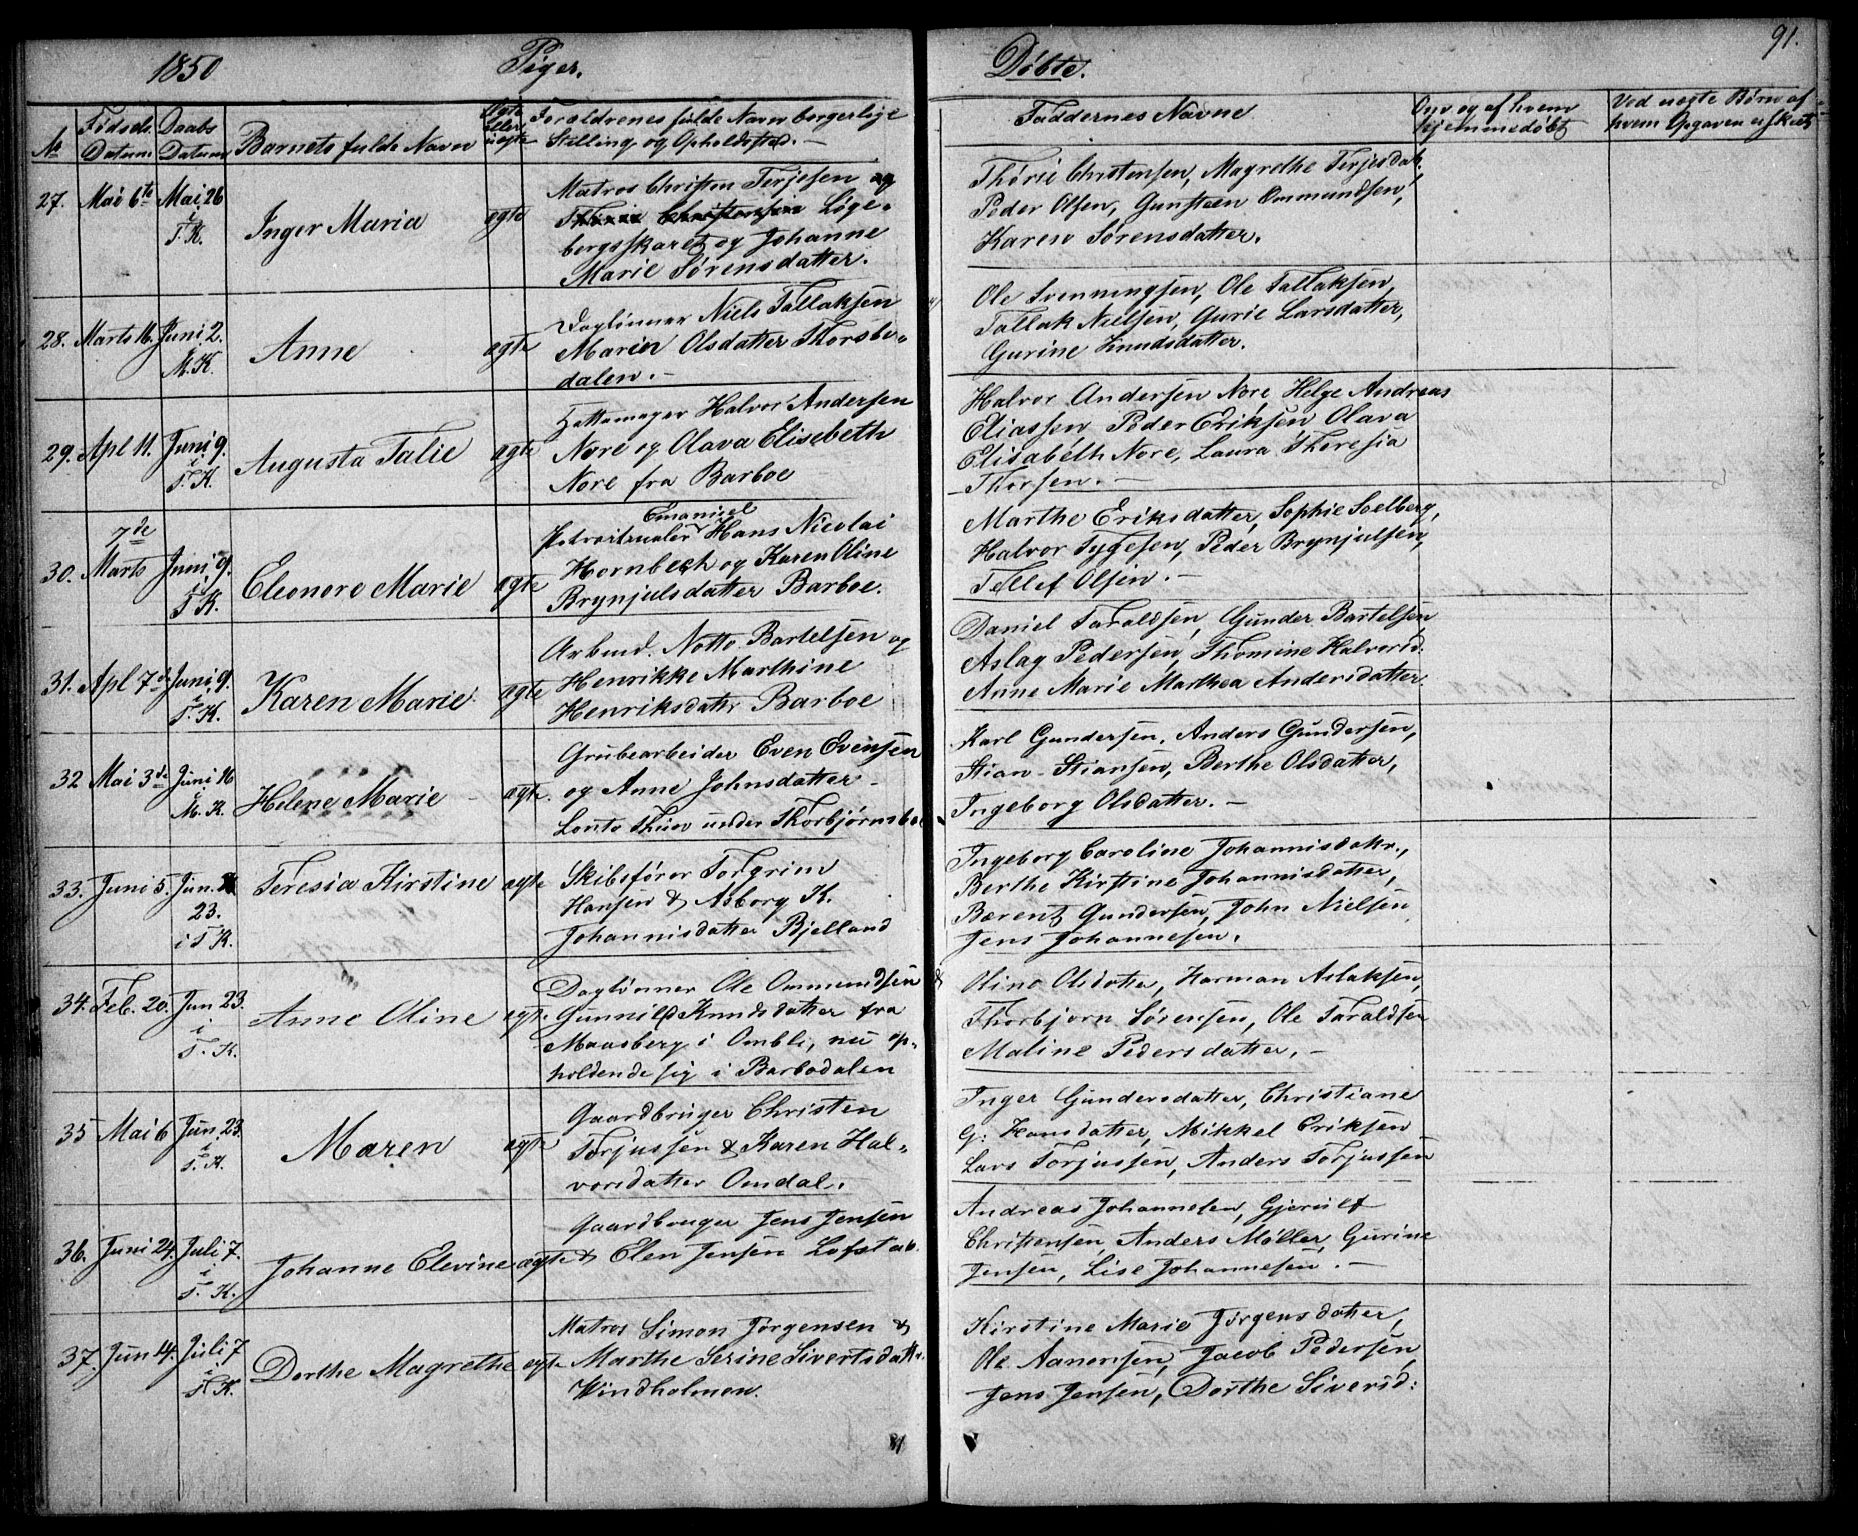 1850 Piger. Døbte. 91.
№ Fødsels Datum Daabs Datum Barnets fulde Navn Ægte eller uægte Forældrenes fulde Navn borgerlige Stilling og Opholdssted. —
Faddernes Navne
Om og af hvem hjemmedøbt
Ved uægte Børn af hvem Opgaven er skeet
27. Mai 6te Mai 26 i T. K. Inger Maria ægte
Matros Christen Terjesen og
Løge-
bergsskaret og Johanne
Marie Sørensdatter.
Thorie Christensen, Magrethe Terjesdatr.
Peder Olsen, Gunsteen Ommundsen,
Karen Sørensdatter.
28. Marts 16. Juni 2. i M. K. Anne ægte
Daglønner Niels Tallaksen
Maren Olsdatter Thorsbo-
dalen. —
Ole Svenningsen, Ole Tallaksen,
Tallak Nielsen, Gurie Larsdatter,
Gurine Knudsdatter.
29. Apl 11. Juni 9. i T. K. Augusta Talie ægte
Hattemager Halvor Andersen
Nore og Olava Elisebeth
Nore fra Barboe
Halvor Andersen Nore, Helge Andreas
Eliassen Peder Eriksen Olava
Elisabeth Nore, Laura Theresia
Thorsen. —
30. 7de Marts Juni 9. i T. K. Eleonore Marie ægte
Emanuel
Hans Nicolai
Hornbech og Karen Oline
Brynjulsdatter Barboe.
Marthe Eriksdatter, Sophie Soelberg,
Halvor Tygesen, Peder Brynjulsen,
Tellef Olsen. —
31. Apl 7de Juni 9. i T. K. Karen Marie ægte
Arbmd. Notto Bartelsen og
Henrikke Marthine
Henriksdatr Barboe
Daniel Taraldsen, Gunder Bartelsen,
Aslag Pedersen, Thomine Halvorsd.
Anne Marie Marthea Andersdatter.
32 Mai 3de Juni 16 i M. K. Helene Marie — ægte.
Grubearbeider Even Evensen
og Anne Johnsdatter —
under Thorbjørnsbo
Karl Gundersen, Anders Gundersen,
Stian Stiansen, Berthe Olsdatter,
Ingeborg Olsdatter. —
33. Juni 5. Jun. 23. i T K. Teresia Kirstine ægte
Skibsfører Torgrim
Hansen & Asborg K.
Johannisdatter Bjelland
Ingeborg Caroline Johannisdatr.,
Berthe Kirstine Johannisdatter,
Bærent Gundersen, John Nielsen
Jens Johannesen.
34. Feb. 20. Jun 23. i T. K. Anne Oline ægte
Daglønner Ole Ommundsen &
Gunnild Knudsdatter fra
Maasberg i Ombli, nu op-
holdende sig i Barbodalen
Oline Olsdatter, Harman Aslaksen,
Thorbjørn Sørensen, Ole Taraldsen
Maline Pedersdatter. —
35 Mai 6 Jun. 23. i T. K. Maren ægte
Gaardbruger Christen
Torjussen & Karen Hal-
vorsdatter Omdal.
Inger Gundersdatter, Christiane
G: Hansdatter, Mikkel Eriksen
Lars Torjussen, Anders Torjussen
36. Juni 24. Juli 7. i T. K. Johanne Elevine ægte
Gaardbruger Jens Jensen
& Elen Jensen
Andreas Johannesen, Gjerulf
Christensen, Anders Møller, Gurine
Jensen, Lise Johannesen. —
37. Jun 14. Juli 7 i T K. Dorthe Magrethe ægte
Matros Simon Jørgensen &
Marthe Serine Sivertsdatr.
Windholmen.
Kirstine Marie Jørgensdatter,
Ole Aanensen, Jacob Pedersen
Jens Jensen, Dorthe Siversd: